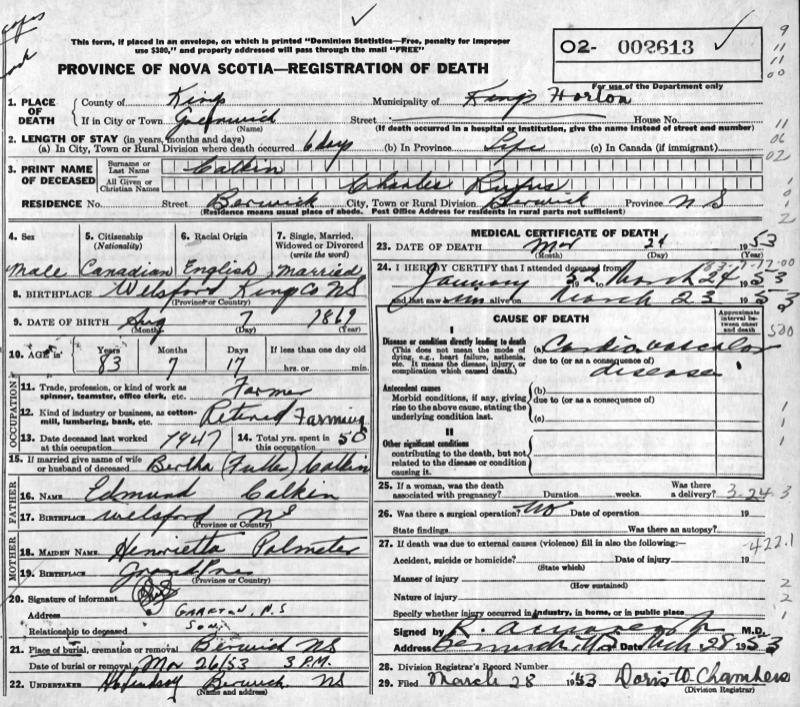 This form, if placed in an envelope, on which is printed "Dominion Statistics—Free, penalty for improper
use $300," and properly addressed will pass through the mail "FREE"
PROVINCE OF NOVA SCOTIA—REGISTRATION OF DEATH
02- 002613
For use of the Department only
1. PLACE OF DEATH County of Kings Municipality of Kings Horton
If in City or Town Greenwich Street House No.
(Name) (If death occurred in a hospital or institution, give the name instead of street and number)
2. LENGTH OF STAY (in years, months and days)
(a) In City, Town or Rural Division where death occurred 6 days (b) In Province Life (c) In Canada (if immigrant)
3. PRINT NAME OF DECEASED Surname or Last Name Calkin
All Given or Christian Names Charles Rufus
RESIDENCE No. Street Berwick City, Town or Rural Division Berwick Province N S
(Residence means usual place of abode. Post Office Address for residents in rural parts not sufficient)
4. Sex 5. Citizenship (Nationality) 6. Racial Origin 7. Single, Married, Widowed or Divorced (write the word)
Male Canadian English Married
8. BIRTHPLACE Welsford Kings Co NS
(Province or Country)
9. DATE OF BIRTH Aug 7 1869
(Month) (Day) (Year)
10. AGE in Years Months Days If less than one day old
83 7 17 hrs. or min.
OCCUPATION
11. Trade, profession, or kind of work as spinner, teamster, office clerk, etc. Farmer
12. Kind of industry or business, as cotton-mill, lumbering, bank, etc. Retired Farming
13. Date deceased last worked at this occupation 1947 14. Total yrs. spent in this occupation 50
15. If married give name of wife or husband of deceased Bertha (Fuller) Calkin
FATHER
16. NAME Edmund Calkin
17. BIRTHPLACE Welsford NS
(Province or Country)
MOTHER
18. MAIDEN NAME Henrietta Palmeter
19. BIRTHPLACE Grand Pre
(Province or Country)
20. Signature of informant
Address N.S
Relationship to deceased Son
21. Place of burial, cremation or removal Berwick NS
Date of burial or removal Mar 26/53 3 P.M.
22. UNDERTAKER Berwick NS
(Name and address)
MEDICAL CERTIFICATE OF DEATH
23. DATE OF DEATH Mar 24 1953
(Month) (Day)
24. I HEREBY CERTIFY that I attended deceased from
January 3rd to March 24 1953
and last saw him alive on March 23 1953
CAUSE OF DEATH
Approximate interval between onset and death
I
Disease or condition directly leading to death
(This does not mean the mode of dying, e.g., heart failure, asthenia, etc. It means the disease, injury, or complication which caused death.)
(a) Cardio vascular
due to (or as a consequence of)
disease
Antecedent causes
Morbid conditions, if any, giving rise to the above cause, stating the underlying condition last.
(b)
due to (or as a consequence of)
(c)
II
Other significant conditions
contributing to the death, but not related to the disease or condition causing it.
25. If a woman, was the death associated with pregnancy? Duration weeks. Was there a delivery? 3-24-3
26. Was there a surgical operation? No Date of operation 19
State findings Was there an autopsy?
27. If death was due to external causes (violence) fill in also the following:— -422.1
Accident, suicide or homicide? Date of injury 19
(State which)
Manner of injury
(How sustained)
Nature of injury
Specify whether injury occurred in industry, in home, or in public place
Signed by M.D.
Address Berwick NS Date Mch 28 1953
28. Division Registrar's Record Number
29. Filed March 28 1953 Doris W Chambers
(Division Registrar)